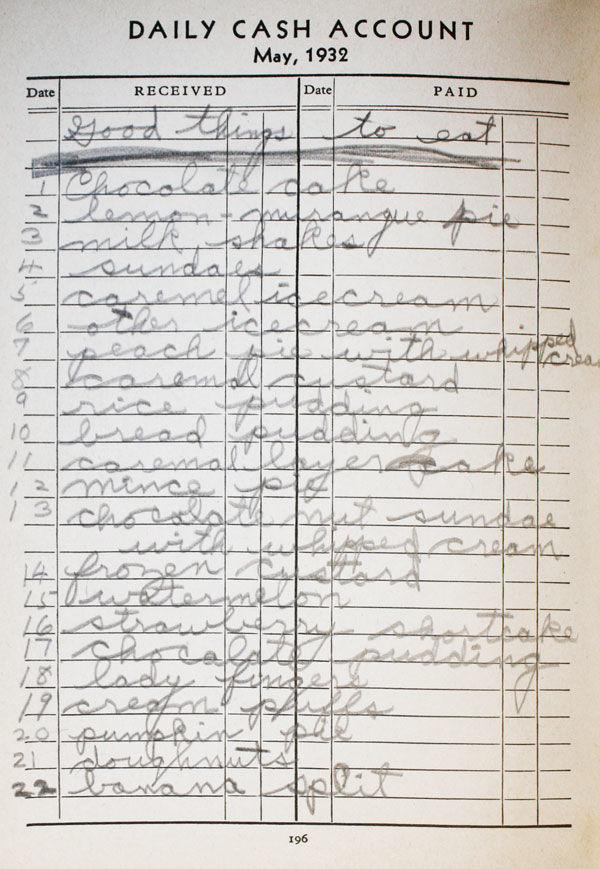 DAILY CASH ACCOUNT
May, 1932
Date RECEIVED Date PAID
Good things to eat
1 Chocolate cake
2 lemon-murangue pie
3 milk shakes
4 sundaes
5 caremel icecream
6 other icecream
7 peach pie with whipped cream
8 caremel custard
9 rice pudding
10 bread pudding
11 caremal layer cake
12 mince pie
13 chocolate nut sundae
with whipped cream
14 frozen custard
15 watermelon
16 strawberry shortcake
17 chocalate pudding
18 lady fingers
19 cream puffs
20 pumpkin pie
21 doughnuts
22 banana split
196